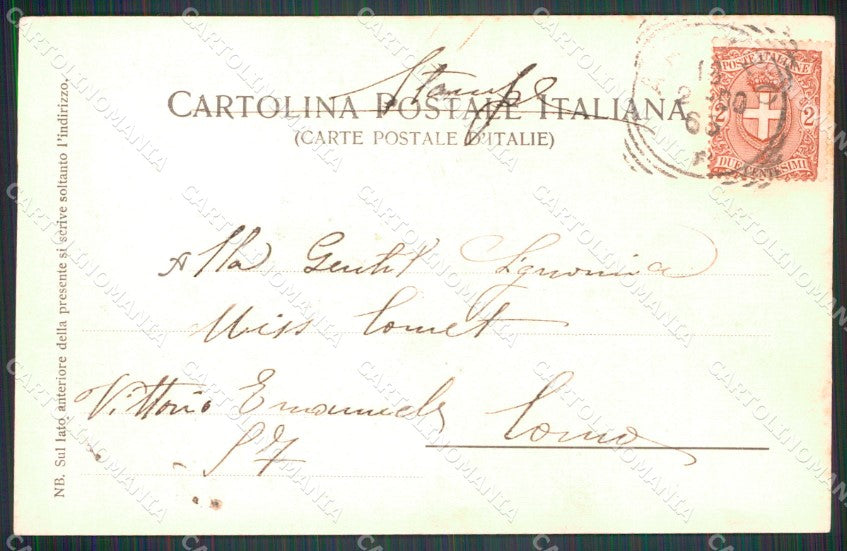 Stampe
CARTOLINA POSTALE ITALIANA
(CARTE POSTALE D'ITALIE)
POSTE ITALIANE
2 2
DUE CENTESIMI
Alla Gentil Signorina
Miss Comet
Vittorio Emanuele Como
57
NB. Sul lato anteriore della presente si scrive soltanto l'indirizzo.
CARTOLINOMANIA